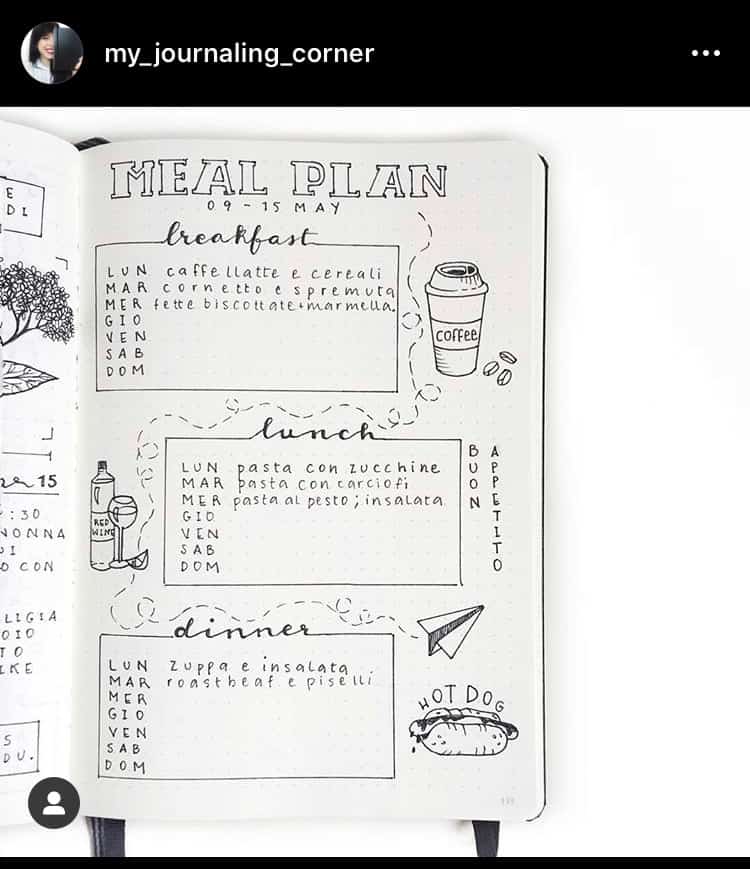 my_journaling_corner
MEAL PLAN
09-15 MAY
breakfast
LUN caffellatte e cereali
MAR cornetto e spremuta
MER fette biscottate+marmella.
GIO
VEN
SAB
DOM
COFFEE
lunch
LUN pasta con zucchine
MAR pasta con carciofi
MER pasta al pesto; insalata
GIO
VEN
SAB
DOM
BUON
APPETITO
RED
WINE
dinner
LUN zuppa e insalata
MAR roastbeaf e piselli
MER
GIO
VEN
SAB
DOM
HOT DOG
E
DI
15
:30
NONNA
DI
O CON
LIGIA
OIO
TO
IKE
S
DU.